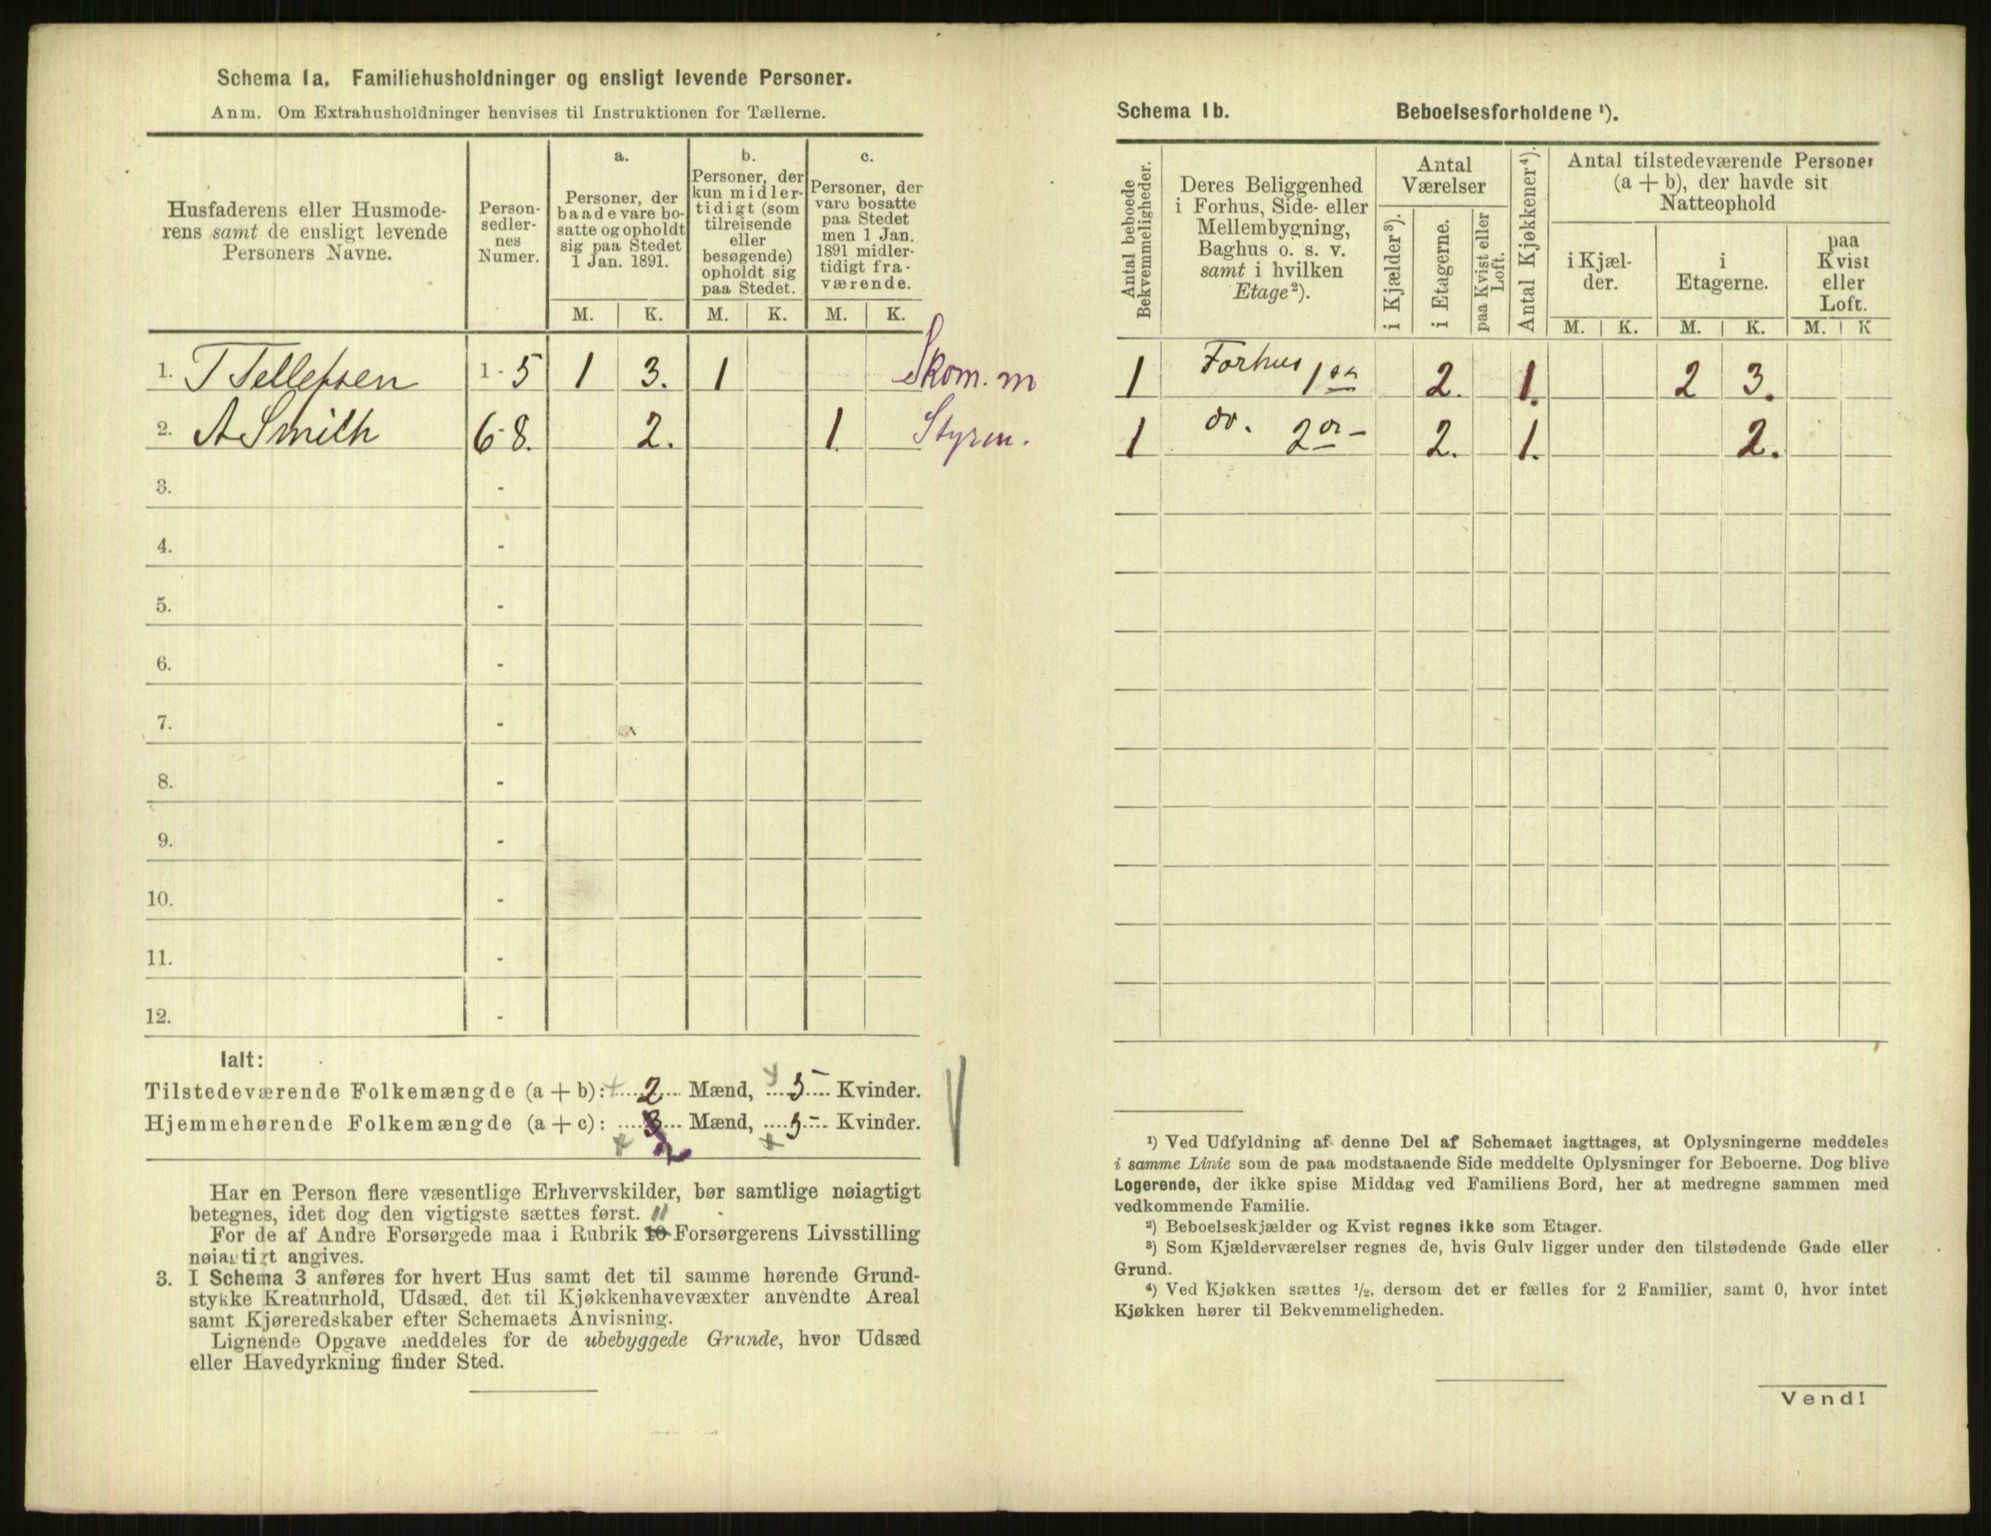 Schema 1a. Familiehusholdninger og ensligt levende Personer.
Anm. Om Extrahusholdninger henvises til Instruktionen for Tællerne.
Husfaderens eller Husmode-
rens samt de ensligt levende
Personers Navne.
Person-
sedler-
nes
Numer.
a.
Personer, der
baade vare bo-
satte og opholdt
sig paa Stedet
1 Jan. 1891.
b.
Personer, der
kun midler-
tidigt (som
tilreisende
eller
besøgende)
opholdt sig
paa Stedet.
c.
Personer, der
vare bosatte
paa Stedet
men 1 Jan.
1891 midler-
tidigt fra-
værende.
M. K. M. K. M. K.
1. T Tellefsen 1-5 1 3. 1 Skom. m
2. A Smith 6-8. 2. 1. Styrm.
3. -
4. -
5. -
6. -
7. -
8. -
9. -
10. -
11. -
12. -
Ialt:
Tilstedeværende Folkemængde (a + b): 2 Mænd, 5 Kvinder.
Hjemmehørende Folkemængde (a + c): 3 Mænd, 5 Kvinder.
2
Har en Person flere væsentlige Erhvervskilder, bør samtlige nøiagtigt
betegnes, idet dog den vigtigste sættes først. 11
For de af Andre Forsørgede maa i Rubrik 10 Forsørgerens Livsstilling
nøiagtigt angives.
3. I Schema 3 anføres for hvert Hus samt det til samme hørende Grund-
stykke Kreaturhold, Udsæd, det til Kjøkkenhavevæxter anvendte Areal
samt Kjøreredskaber efter Schemaets Anvisning.
Lignende Opgave meddeles for de ubebyggede Grunde, hvor Udsæd
eller Havedyrkning finder Sted.
Schema 1b. Beboelsesforholdene ¹).
Antal beboede
Bekvemmeligheder.
Deres Beliggenhed
i Forhus, Side- eller
Mellembygning,
Baghus o. s. v.
samt i hvilken
Etage²).
Antal
Værelser
i Kjælder³).
i Etagerne.
paa Kvist eller
Loft.
Antal Kjøkkener⁴).
Antal tilstedeværende Personer
(a + b), der havde sit
Natteophold
i Kjæl-
der.
i
Etagerne.
paa
Kvist
eller
Loft.
M. K. M. K. M. K
1 Forhus 1ste 2. 1. 2 3.
1 do. 2den 2. 1. 2.
¹) Ved Udfyldning af denne Del af Schemaet iagttages, at Oplysningerne meddeles
i samme Linie som de paa modstaaende Side meddelte Oplysninger for Beboerne. Dog blive
Logerende, der ikke spise Middag ved Familiens Bord, her at medregne sammen med
vedkommende Familie.
²) Beboelseskjælder og Kvist regnes ikke som Etager.
³) Som Kjælderværelser regnes de, hvis Gulv ligger under den tilstødende Gade eller
Grund.
⁴) Ved Kjøkken sættes ½, dersom det er fælles for 2 Familier, samt 0, hvor intet
Kjøkken hører til Bekvemmeligheden.
Vend!